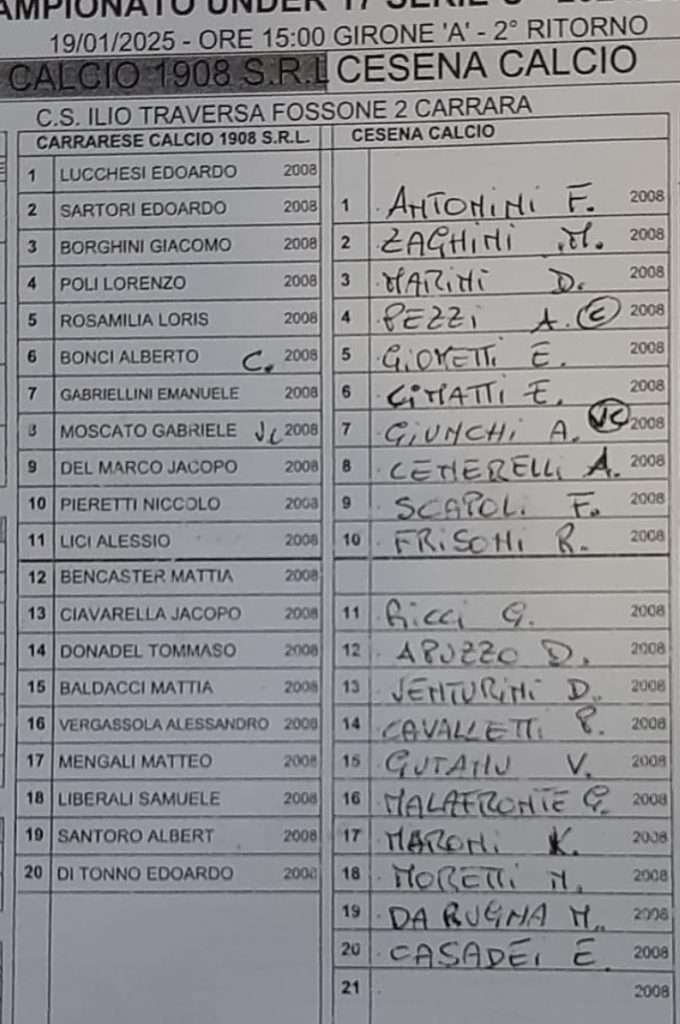 CAMPIONATO UNDER 17 SERIE C
19/01/2025 - ORE 15:00 GIRONE 'A' - 2° RITORNO
CALCIO 1908 S.R.L CESENA CALCIO
C.S. ILIO TRAVERSA FOSSONE 2 CARRARA
CARRARESE CALCIO 1908 S.R.L.
1 LUCCHESI EDOARDO 2008
2 SARTORI EDOARDO 2008
3 BORGHINI GIACOMO 2008
4 POLI LORENZO 2008
5 ROSAMILIA LORIS 2008
6 BONCI ALBERTO C. 2008
7 GABRIELLINI EMANUELE 2008
8 MOSCATO GABRIELE VC 2008
9 DEL MARCO JACOPO 2008
10 PIERETTI NICCOLO 2008
11 LICI ALESSIO 2008
12 BENCASTER MATTIA 2008
13 CIAVARELLA JACOPO 2008
14 DONADEL TOMMASO 2008
15 BALDACCI MATTIA 2008
16 VERGASSOLA ALESSANDRO 2008
17 MENGALI MATTEO 2008
18 LIBERALI SAMUELE 2008
19 SANTORO ALBERT 2008
20 DI TONNO EDOARDO 2008
CESENA CALCIO
1 ANTONINI F. 2008
2 ZAGHINI M. 2008
3 MARINI D. 2008
4 PEZZI A. C 2008
5 GIOVETTI E. 2008
6 CIMATTI E. 2008
7 GIUNCHI A. VC 2008
8 CENERELLI A. 2008
9 SCAPOLI F. 2008
10 FRISONI R. 2008
11 RICCI G. 2008
12 APUZZO D. 2008
13 VENTURINI D. 2008
14 CAVALLETTI P. 2008
15 GUTANU V. 2008
16 MALAFRONTE G. 2008
17 MARONI K. 2008
18 MORETTI M. 2008
19 DA RUGNA M. 2008
20 CASADEI E. 2008
21 2008